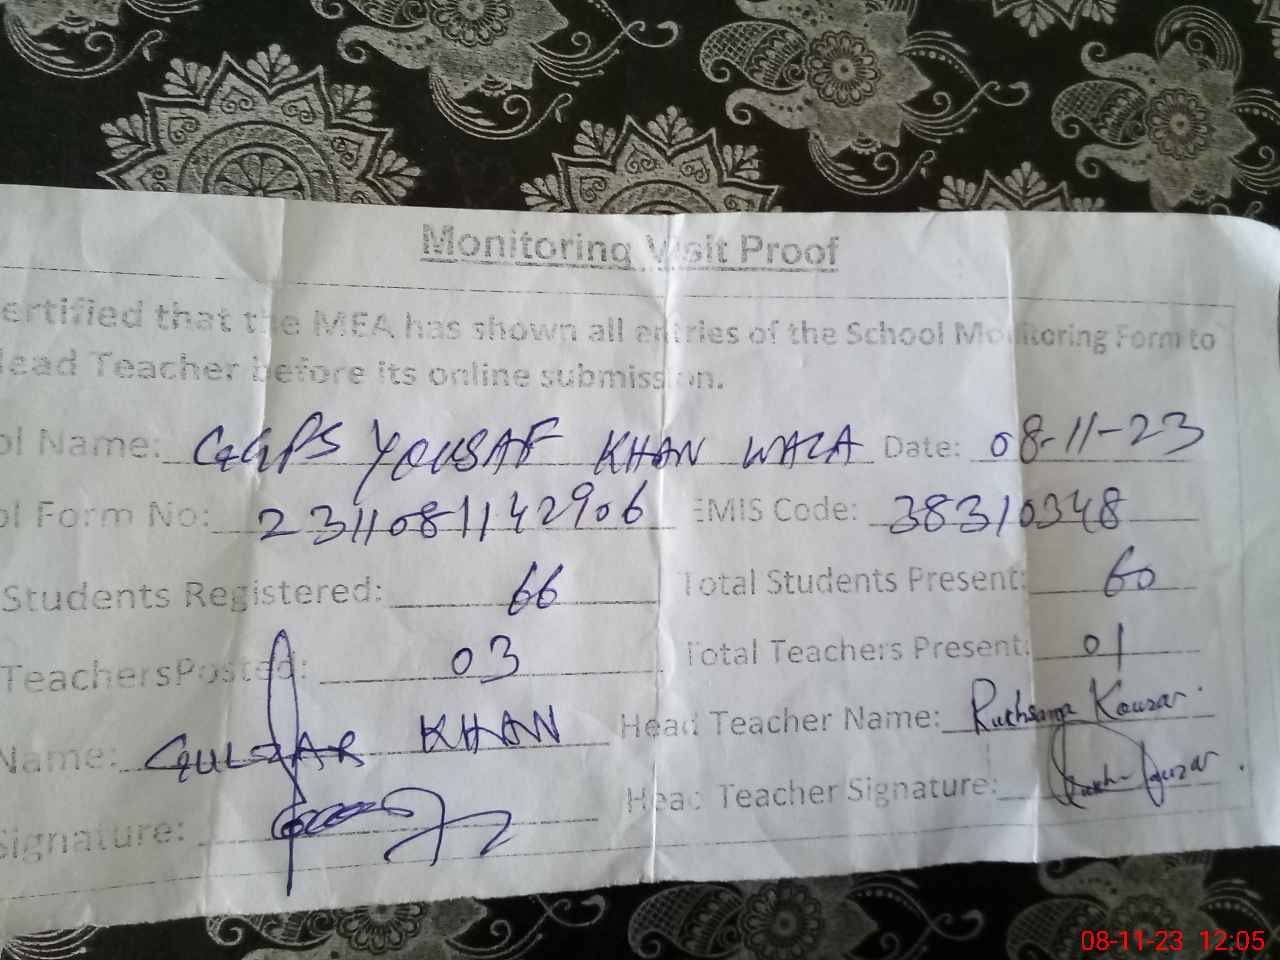 Monitoring Visit Proof
ertified that the MEA has shown all entries of the School Monitoring Form to
lead Teacher before its online submission.
ol Name: GGPS YOUSAF KHAN WALA Date: 08-11-23
ol Form No: 2311081142906 EMIS Code: 38310348
Students Registered: 66 Total Students Present: 60
TeachersPosted: 03 Total Teachers Present: 01
Name: GULZAR KHAN Head Teacher Name: Kousar
Signature: Head Teacher Signature:
08-11-23 12:05